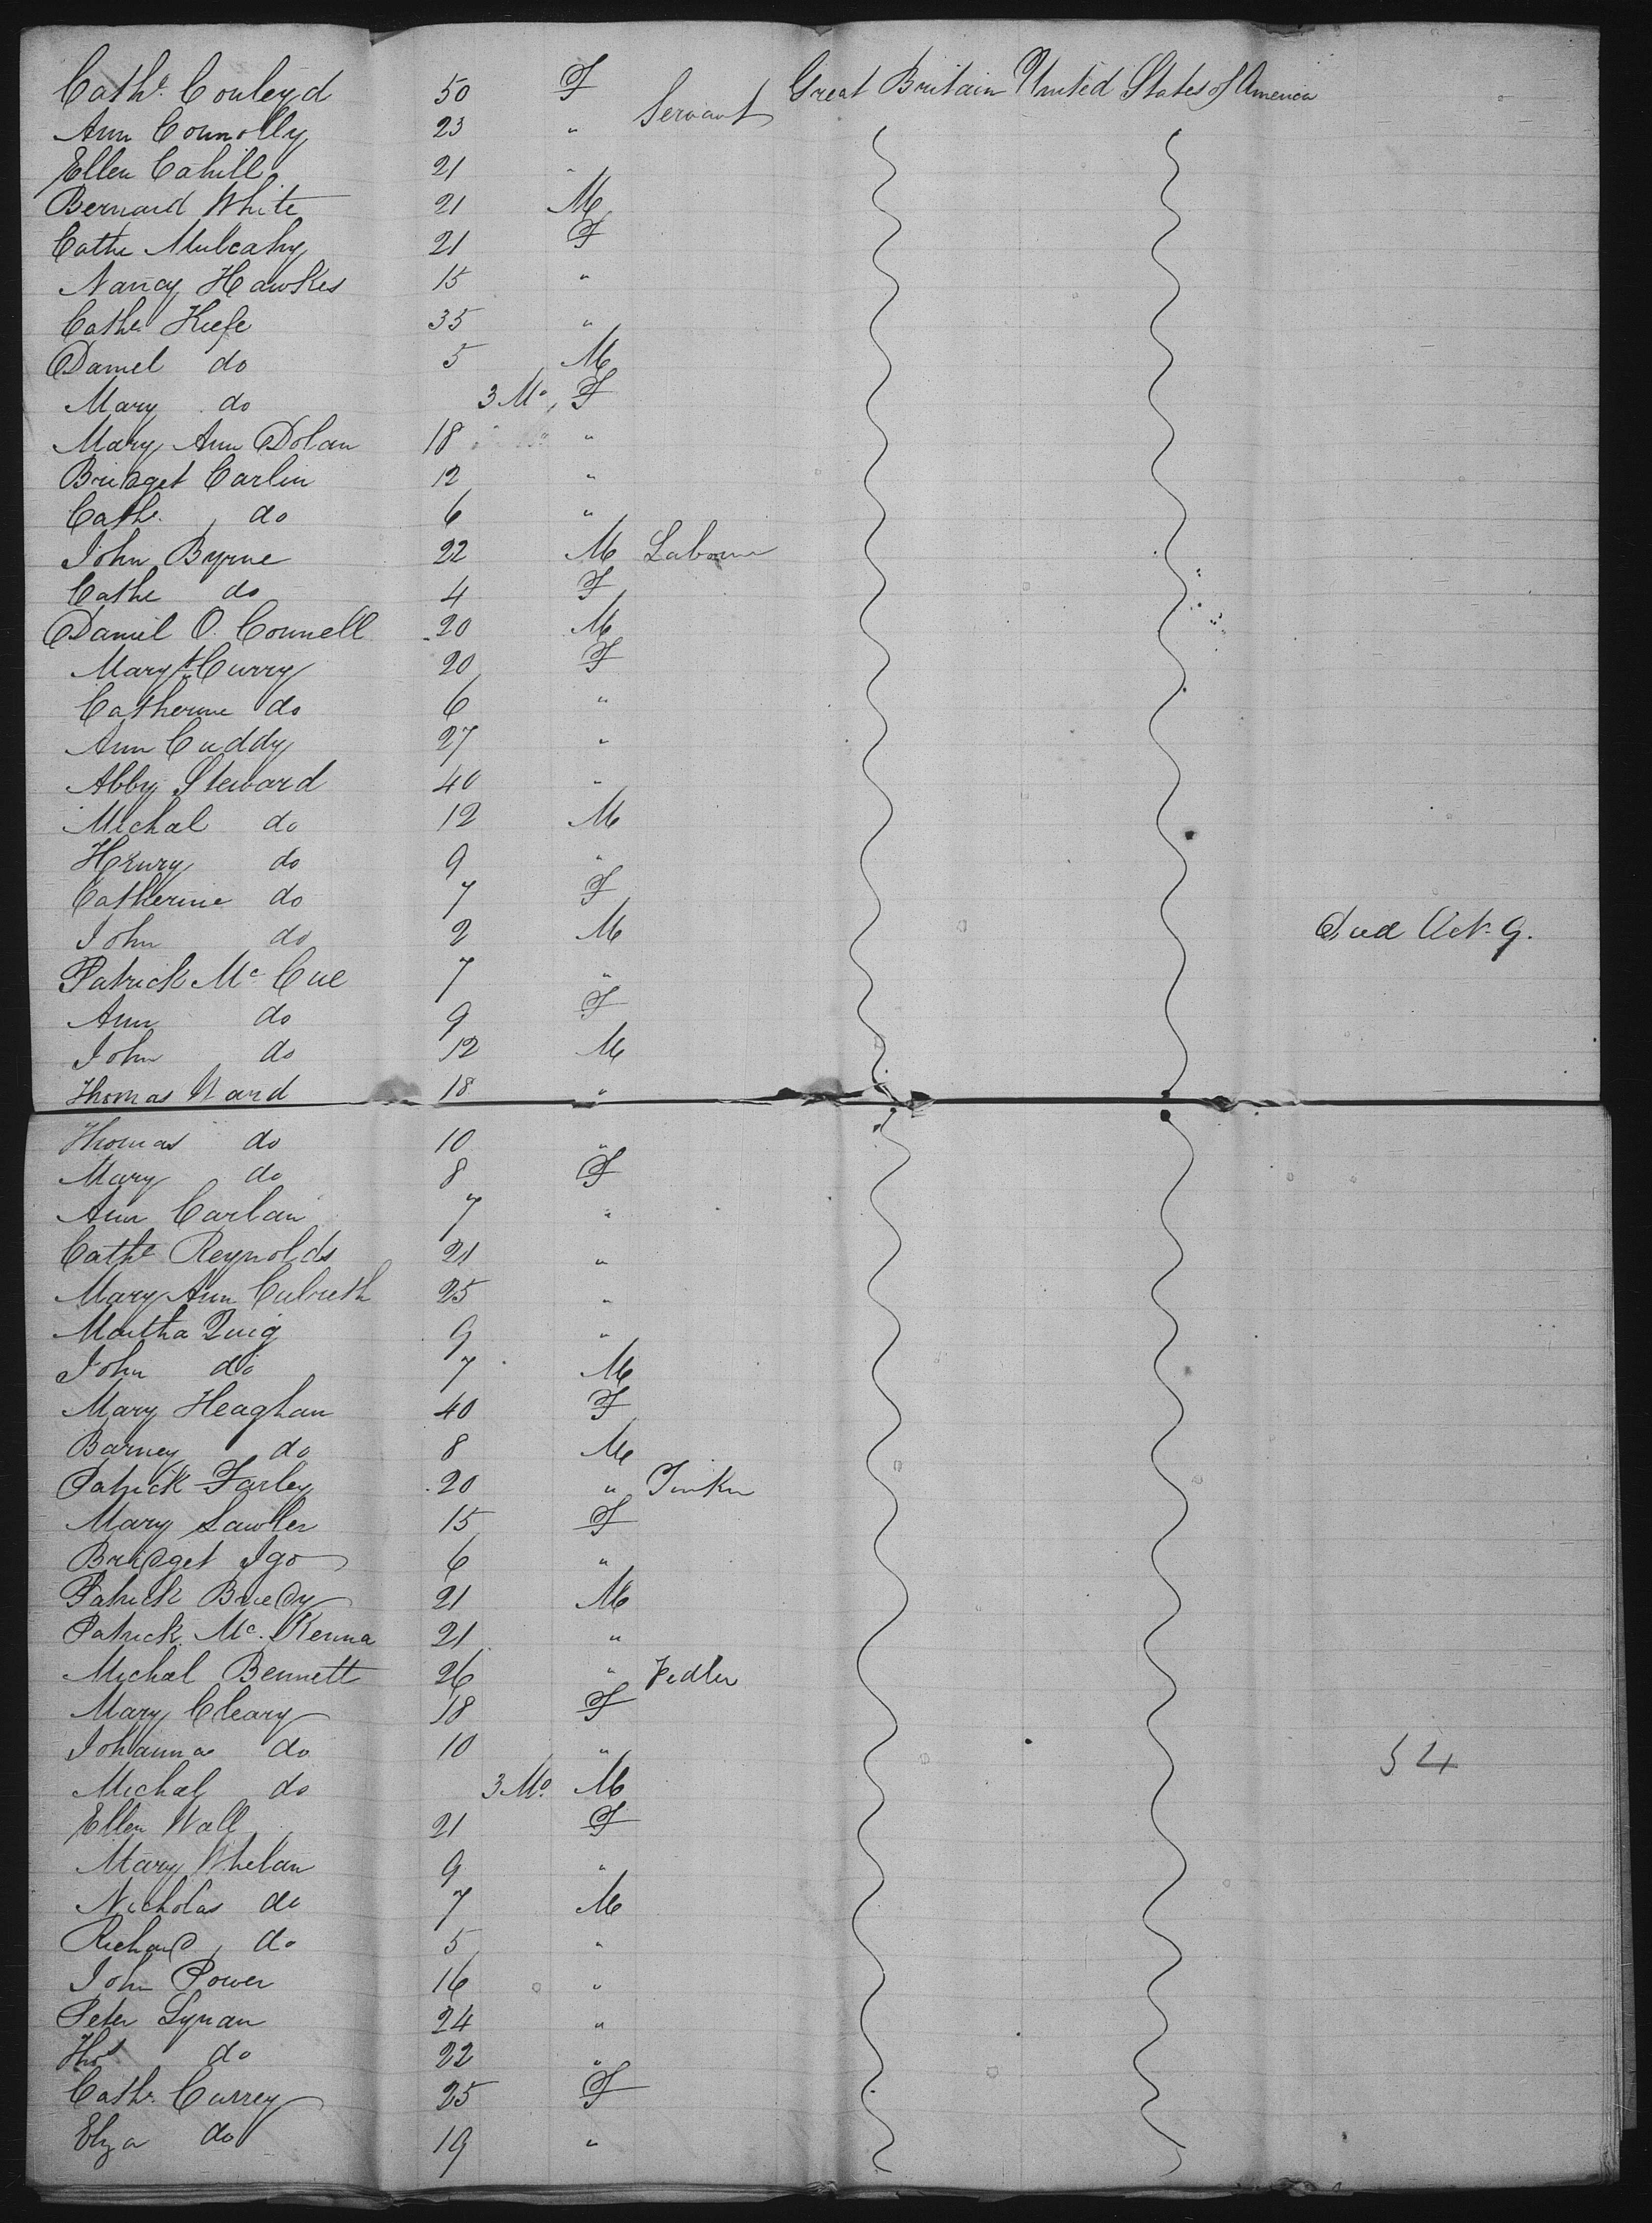 Cathe. Conleyd 50 F Servant Great Britain United States of America
Ann Connolly 23 "
Ellen Cahill 21 "
Bernard White 21 M
Cathe Mulcahy 21 F
Nancy Hawkes 15 "
Cathe Kiefe 35 "
Daniel do 5 M
Mary do 3 Mo. F
Mary Ann Dolan 18 "
Bridget Carlin 12 "
Cathe. do 6 "
John Byrne 22 M Labourer
Cathe do 4 F
Daniel O. Connell 20 M
Mary Curry 20 F
Catherine do 6 "
Ann Cuddy 27 "
Abby Steward 40 "
Michal do 12 M
Henry do 9 "
Catherine do 7 F
John do 2 M Died Oct. 9.
Patrick Mc Cue 7 "
Ann do 9 F
John do 12 M
Thomas Ward 18 "
Thomas do 10 "
Mary do 8 F
Ann Carlan 7 "
Cathe Reynolds 21 "
Mary Ann Culreth 25 "
Martha Quig 9 "
John do 7 M
Mary Heaghan 40 F
Barney do 8 M
Patrick Farley 20 " Tinker
Mary Lawler 15 F
Bridget Igo 6 "
Patrick Bredy 21 M
Patrick Mc. Kenna 21 "
Michal Bennett 26 " Pedler
Mary Cleary 18 F
Johanna do 10 " 54
Michal do 3 Mo. M
Ellen Wall 21 F
Mary Whelan 9 "
Nicholas do 7 M
Richard do 5 "
John Power 16 "
Peter Lynan 24 "
Thos do 22 "
Cathe. Currey 25 F
Eliza do 19 "